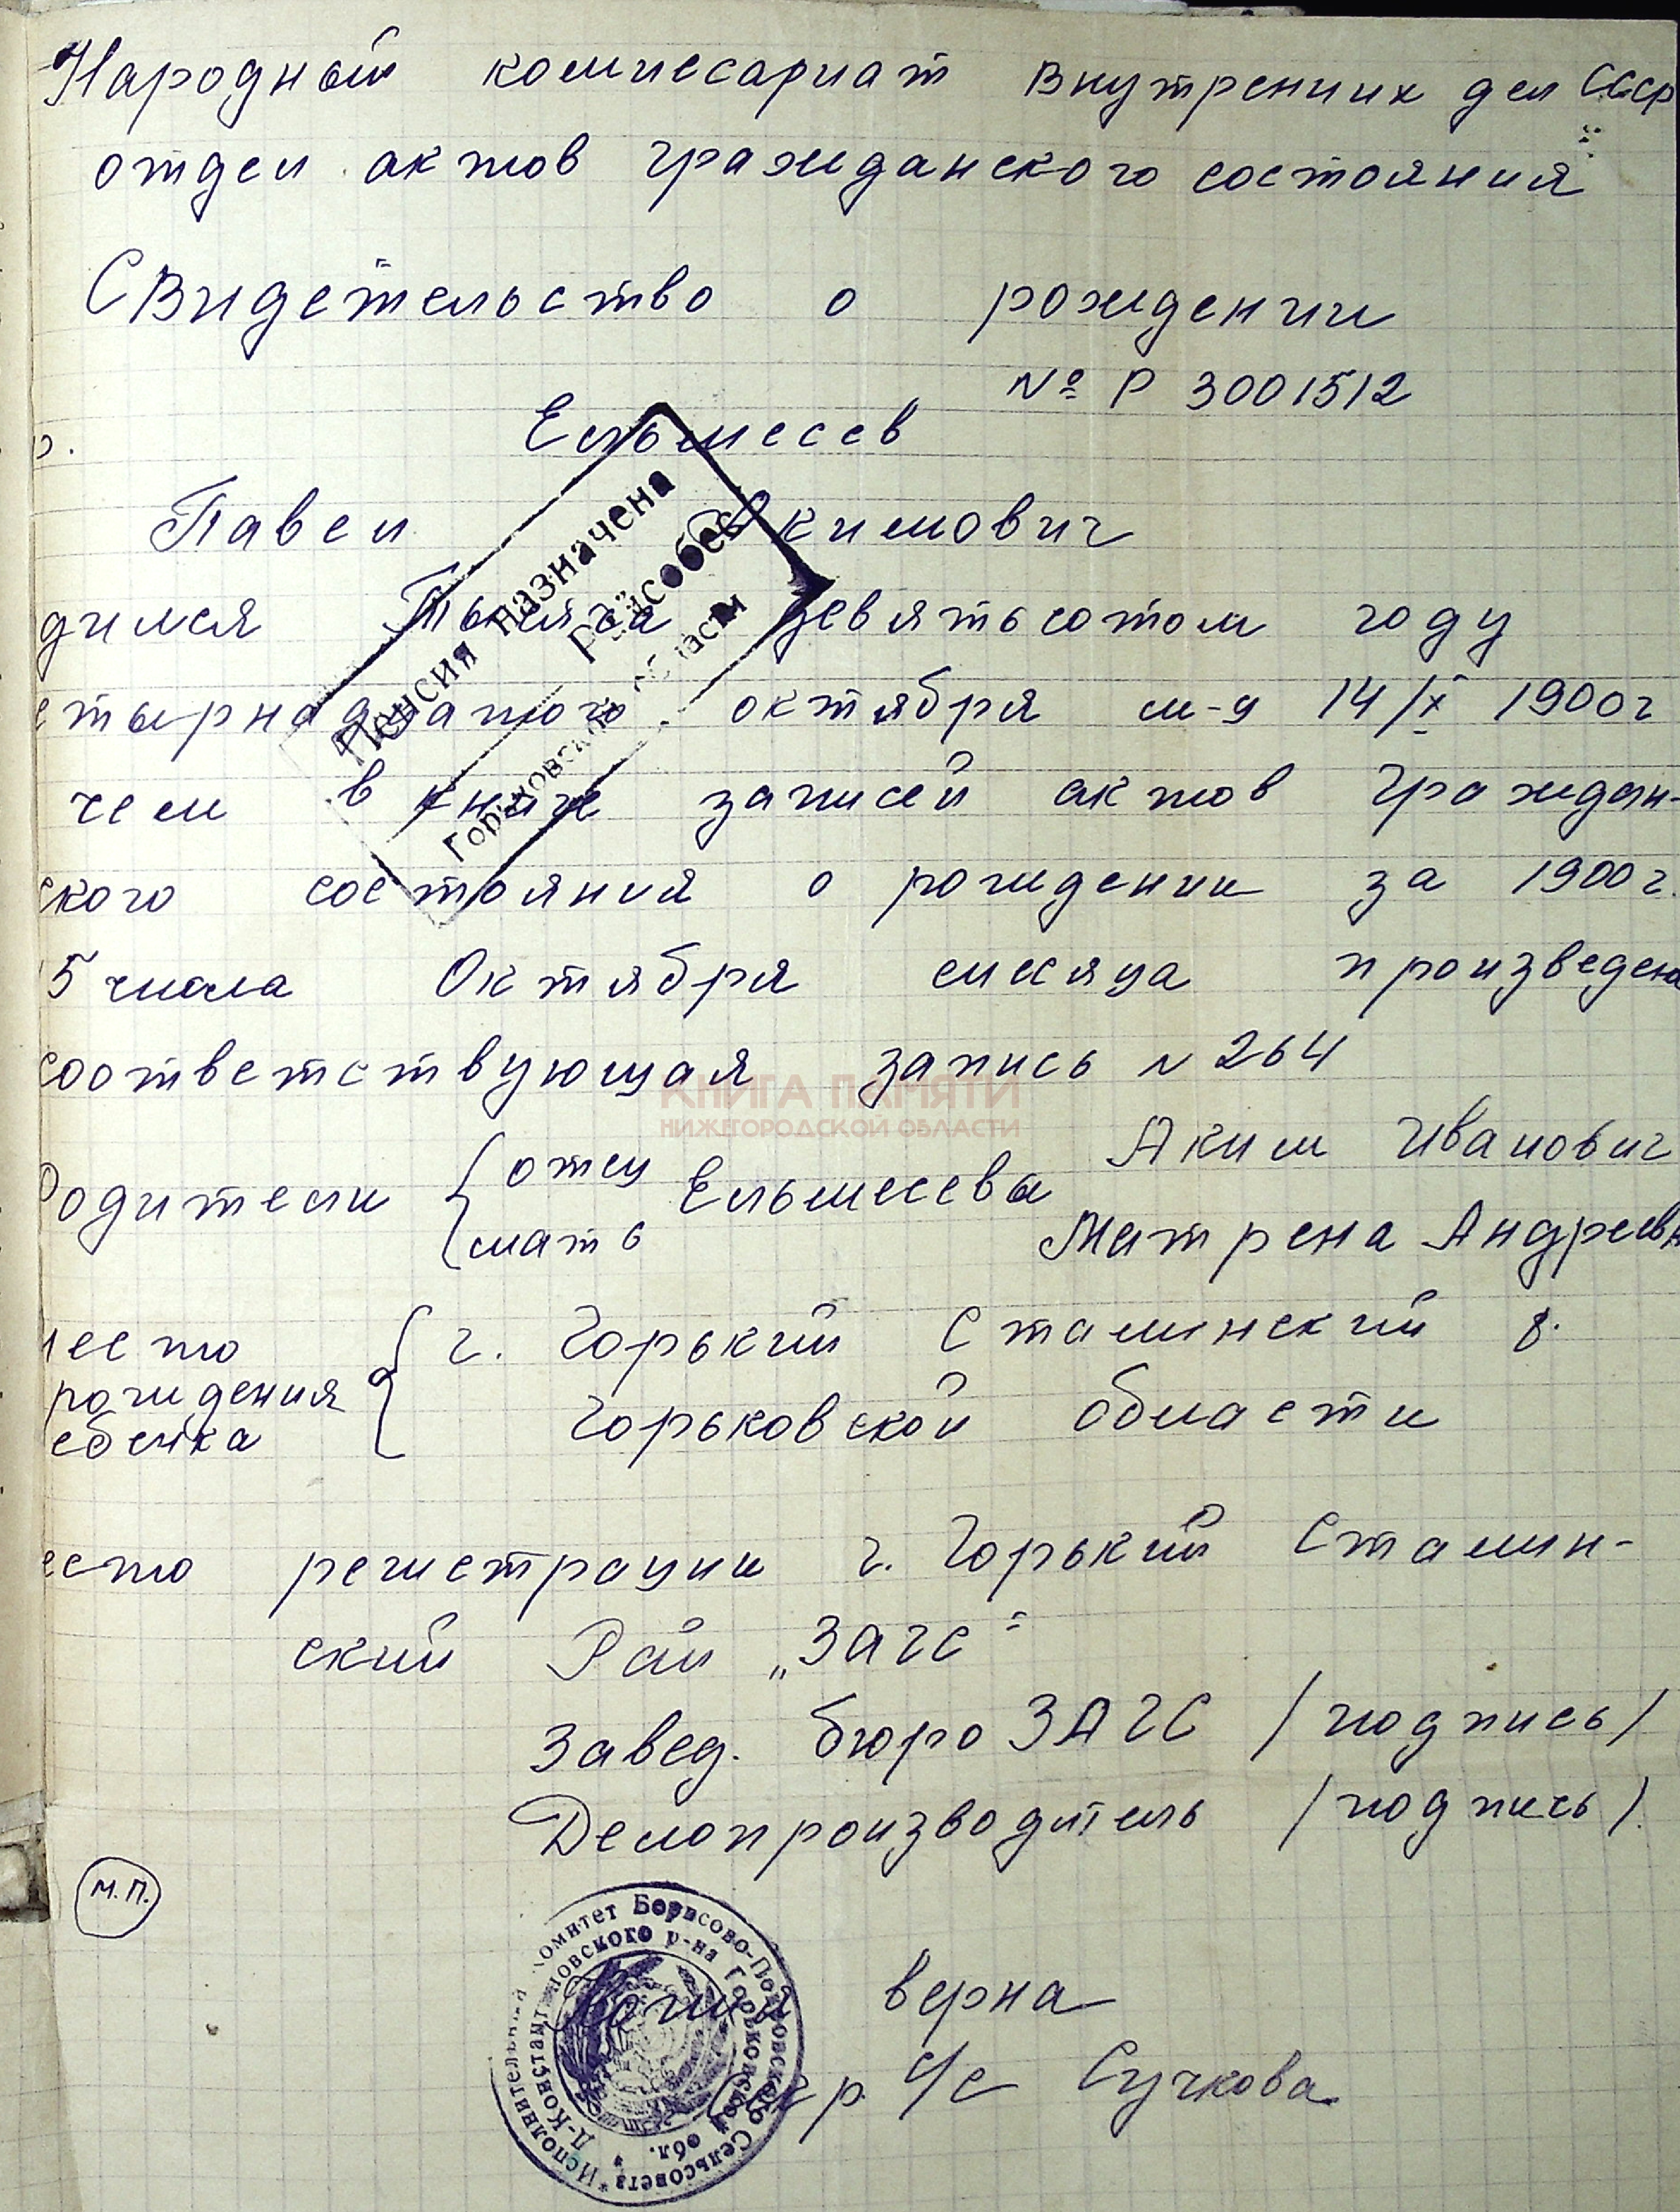 Народный комиссариат внутренних дел СССР
отдел актов гражданского состояния
Свидетельство о рождении
№ Р 3001512
р. Ельмесев
Павел Акимович
дился Тысяча девятьсотом году
етырнадцатого октября м-ц 14/X 1900г
чем в книге записей актов граждан-
ского состояния о рождении за 1900г.
15 числа Октября месяца произведена
соответствующая запись N 264
Родители { отец Ельмесева Аким Иванович
мать Матрена Андреевна
место { г. Горький Сталинский р.
рождения
ебенка Горьковской области
есто регистрации г. Горький Сталин-
ский Рай „ЗАГС"
Завед. бюро ЗАГС /подпись/
Делопроизводитель /подпись/.
М.П.
Копия верна
Секр. с/с Сучкова
Пенсия назначена
Райсобес
Горьковской области
Исполнительный комитет Борисово-Покровского Сельсовета
Д-Константиновского р-на Горьковской обл.
КНИГА ПАМЯТИ
НИЖЕГОРОДСКОЙ ОБЛАСТИ